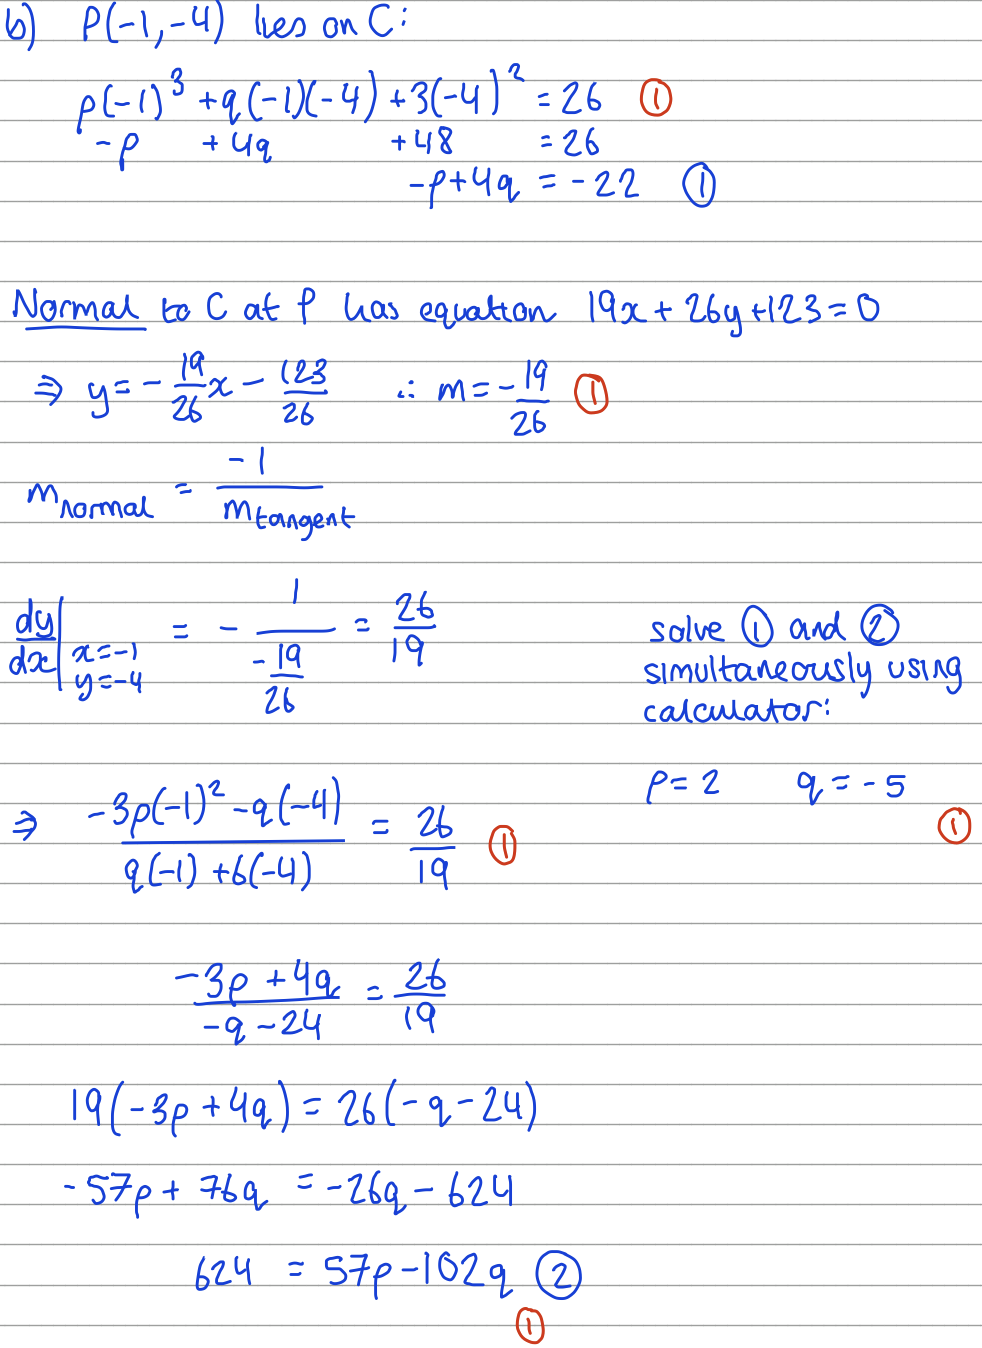 b) P(-1,-4) lies on C:
p(-1)³ + q(-1)(-4) + 3(-4)² = 26 ①
-p + 4q + 48 = 26
-p + 4q = -22 ①
Normal to C at P has equation 19x + 26y + 123 = 0
⇒ y = -19/26 x - 123/26 ∴ m = -19/26 ①
m_normal = -1/m_tangent
dy/dx | x=-1 y=-4 = - 1/(-19/26) = 26/19
solve ① and ②
simultaneously using
calculator:
p = 2 q = -5
①
⇒ (-3p(-1)² - q(-4))/(q(-1) + 6(-4)) = 26/19 ①
(-3p + 4q)/(-q - 24) = 26/19
19(-3p + 4q) = 26(-q - 24)
-57p + 76q = -26q - 624
624 = 57p - 102q ②
①